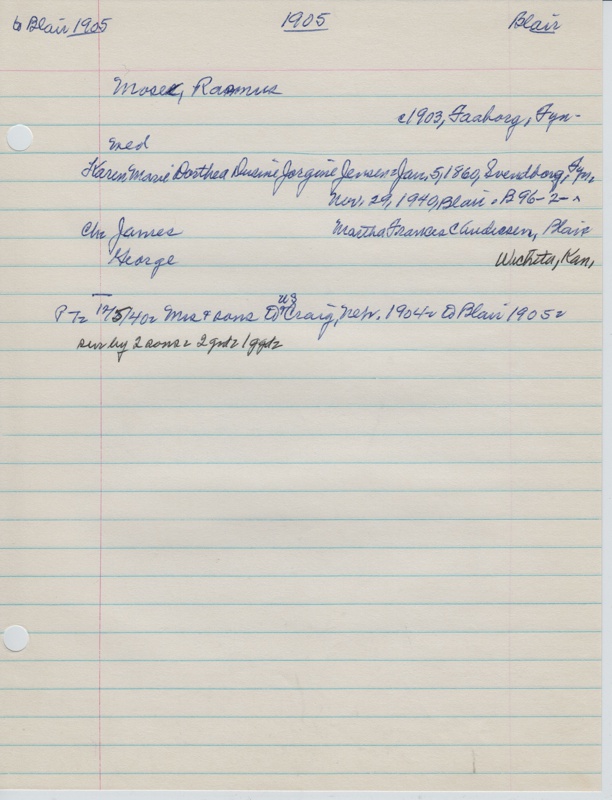 to Blair 1905 1905 Blair
Mosel, Rasmus
c1903, Faaborg, Fyn-
med
Karen Marie Dorthea Dusine Jorgine Jensen = Jan, 5, 1860, Svendborg, Fyn
Nov. 29, 1940, Blair. B96-2-
Ch: James Martha Frances C Andersen, Blair
George Wichita, Kan,
PT= 12/5/40= Mrs + sons to US Craig, Neb. 1904= to Blair 1905=
sur by 2 sons = 2 grd= 1 ggd=